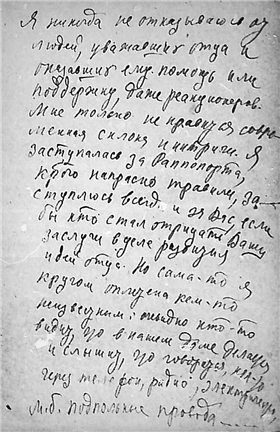 Я никогда не отказываюсь от
людей, уважавших отца и
оказавших ему помощь или
поддержку, даже реакционеров.
Мне только не нравится совре
менная склока и интриги. Я
заступалась за Раппопорта,
кого напрасно травили, за-
ступлюсь всегда и за Вас, если
бы кто стал отрицать Ваши
заслуги в деле развития
идей отца. Но сама-то я
кругом оплетена кем-то
неизвестным: очевидно кто-то
видит, что в нашем доме делается
и слышит, что говорится,
через телефон, радио,
М.б. подпольные провода